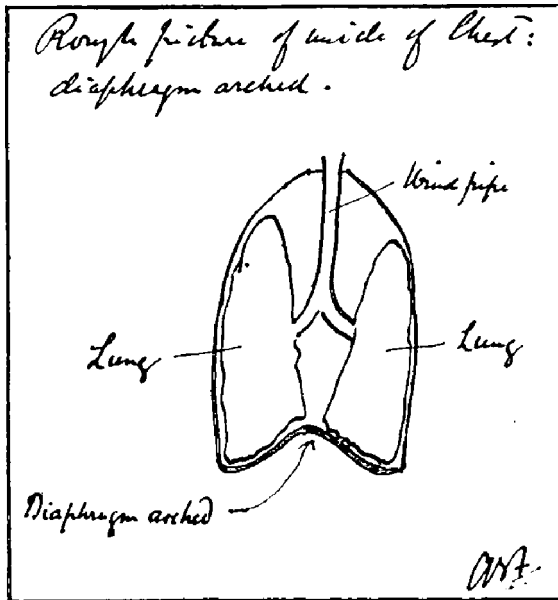 Rough picture of inside of Chest:
diaphragm arched.
Wind pipe
Lung
Lung
Diaphragm arched